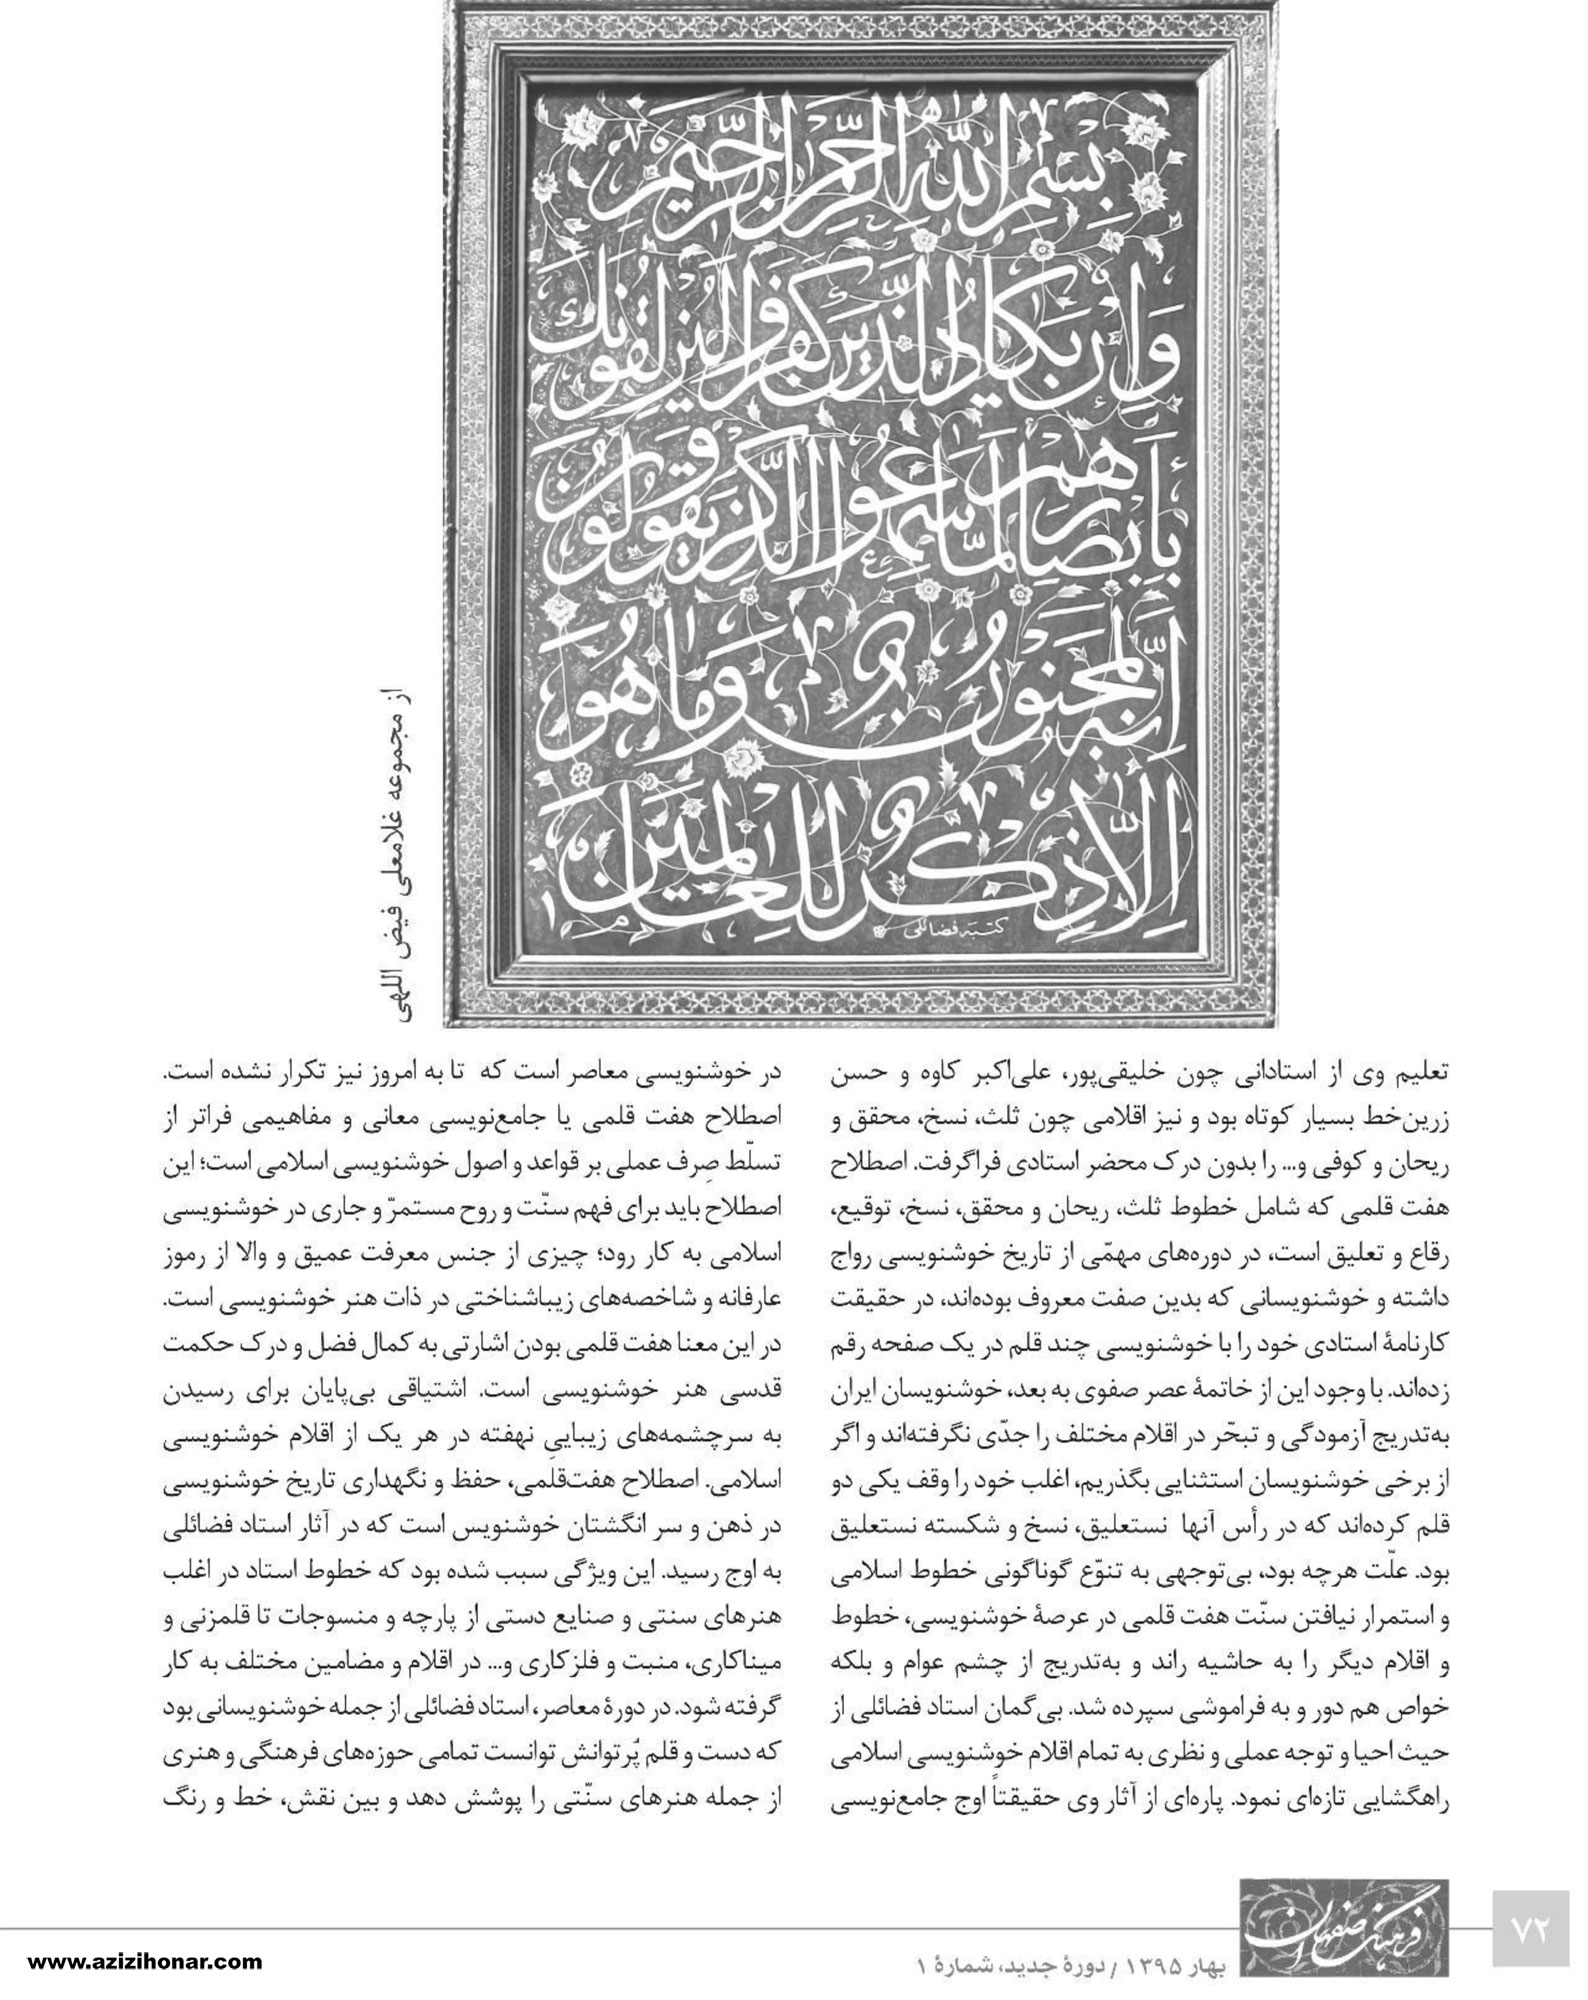 بِسْمِ اللهِ الرَّحْمنِ الرَّحِيمِ
وَاِنْ يَكادُ الَّذينَ كَفَرُوا لَيُزْلِقُونَكَ
بِأَبْصارِهِمْ لَمّا سَمِعُوا الذِّكْرَ وَيَقُولُونَ
اِنَّهُ لَمَجْنُونٌ وَما هُوَ
اِلّا ذِكْرٌ لِلْعالَمينَ
کتبه فضائلی
از مجموعه غلامعلی فیض اللهی
تعلیم وی از استادانی چون خلیقی‌پور، علی‌اکبر کاوه و حسن
زرین‌خط بسیار کوتاه بود و نیز اقلامی چون ثلث، نسخ، محقق و
ریحان و کوفی و... را بدون درک محضر استادی فراگرفت. اصطلاح
هفت قلمی که شامل خطوط ثلث، ریحان و محقق، نسخ، توقیع،
رقاع و تعلیق است، در دوره‌های مهمّی از تاریخ خوشنویسی رواج
داشته و خوشنویسانی که بدین صفت معروف بوده‌اند، در حقیقت
کارنامهٔ استادی خود را با خوشنویسی چند قلم در یک صفحه رقم
زده‌اند. با وجود این از خاتمهٔ عصر صفوی به بعد، خوشنویسان ایران
به‌تدریج آزمودگی و تبحّر در اقلام مختلف را جدّی نگرفته‌اند و اگر
از برخی خوشنویسان استثنایی بگذریم، اغلب خود را وقف یکی دو
قلم کرده‌اند که در رأس آنها نستعلیق، نسخ و شکسته نستعلیق
بود. علّت هرچه بود، بی‌توجهی به تنوّع گوناگونی خطوط اسلامی
و استمرار نیافتن سنّت هفت قلمی در عرصهٔ خوشنویسی، خطوط
و اقلام دیگر را به حاشیه راند و به‌تدریج از چشم عوام و بلکه
خواص هم دور و به فراموشی سپرده شد. بی‌گمان استاد فضائلی از
حیث احیا و توجه عملی و نظری به تمام اقلام خوشنویسی اسلامی
راهگشایی تازه‌ای نمود. پاره‌ای از آثار وی حقیقتاً اوج جامع‌نویسی
در خوشنویسی معاصر است که تا به امروز نیز تکرار نشده است.
اصطلاح هفت قلمی یا جامع‌نویسی معانی و مفاهیمی فراتر از
تسلّط صِرف عملی بر قواعد و اصول خوشنویسی اسلامی است؛ این
اصطلاح باید برای فهم سنّت و روح مستمرّ و جاری در خوشنویسی
اسلامی به کار رود؛ چیزی از جنس معرفت عمیق و والا از رموز
عارفانه و شاخصه‌های زیباشناختی در ذات هنر خوشنویسی است.
در این معنا هفت قلمی بودن اشارتی به کمال فضل و درک حکمت
قدسی هنر خوشنویسی است. اشتیاقی بی‌پایان برای رسیدن
به سرچشمه‌های زیباییِ نهفته در هر یک از اقلام خوشنویسی
اسلامی. اصطلاح هفت‌قلمی، حفظ و نگهداری تاریخ خوشنویسی
در ذهن و سر انگشتان خوشنویس است که در آثار استاد فضائلی
به اوج رسید. این ویژگی سبب شده بود که خطوط استاد در اغلب
هنرهای سنتی و صنایع دستی از پارچه و منسوجات تا قلمزنی و
میناکاری، منبت و فلزکاری و... در اقلام و مضامین مختلف به کار
گرفته شود. در دورهٔ معاصر، استاد فضائلی از جمله خوشنویسانی بود
که دست و قلم پُرتوانش توانست تمامی حوزه‌های فرهنگی و هنری
از جمله هنرهای سنّتی را پوشش دهد و بین نقش، خط و رنگ
۷۲
فرهنگ اصفهان
بهار ۱۳۹۵ / دورهٔ جدید، شمارهٔ ۱
www.azizihonar.com